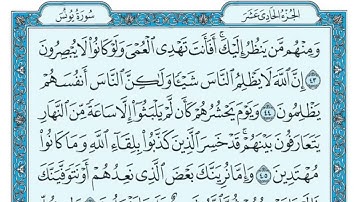 سُورَةُ يُونُسَ الجُزءُ الحَادِى عَشَرَ
وَمِنْهُم مَّن يَنظُرُ إِلَيْكَ أَفَأَنتَ تَهْدِى ٱلْعُمْىَ وَلَوْ كَانُوا۟ لَا يُبْصِرُونَ
٤٣ إِنَّ ٱللَّهَ لَا يَظْلِمُ ٱلنَّاسَ شَيْـًٔا وَلَـٰكِنَّ ٱلنَّاسَ أَنفُسَهُمْ
يَظْلِمُونَ ٤٤ وَيَوْمَ يَحْشُرُهُمْ كَأَن لَّمْ يَلْبَثُوٓا۟ إِلَّا سَاعَةً مِّنَ ٱلنَّهَارِ
يَتَعَارَفُونَ بَيْنَهُمْ ۚ قَدْ خَسِرَ ٱلَّذِينَ كَذَّبُوا۟ بِلِقَآءِ ٱللَّهِ وَمَا كَانُوا۟
مُهْتَدِينَ ٤٥ وَإِمَّا نُرِيَنَّكَ بَعْضَ ٱلَّذِى نَعِدُهُمْ أَوْ نَتَوَفَّيَنَّكَ